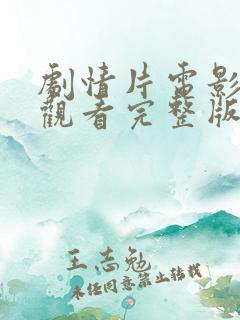 劇情片電影
觀看完整版
王志勉
未经同意禁止转载